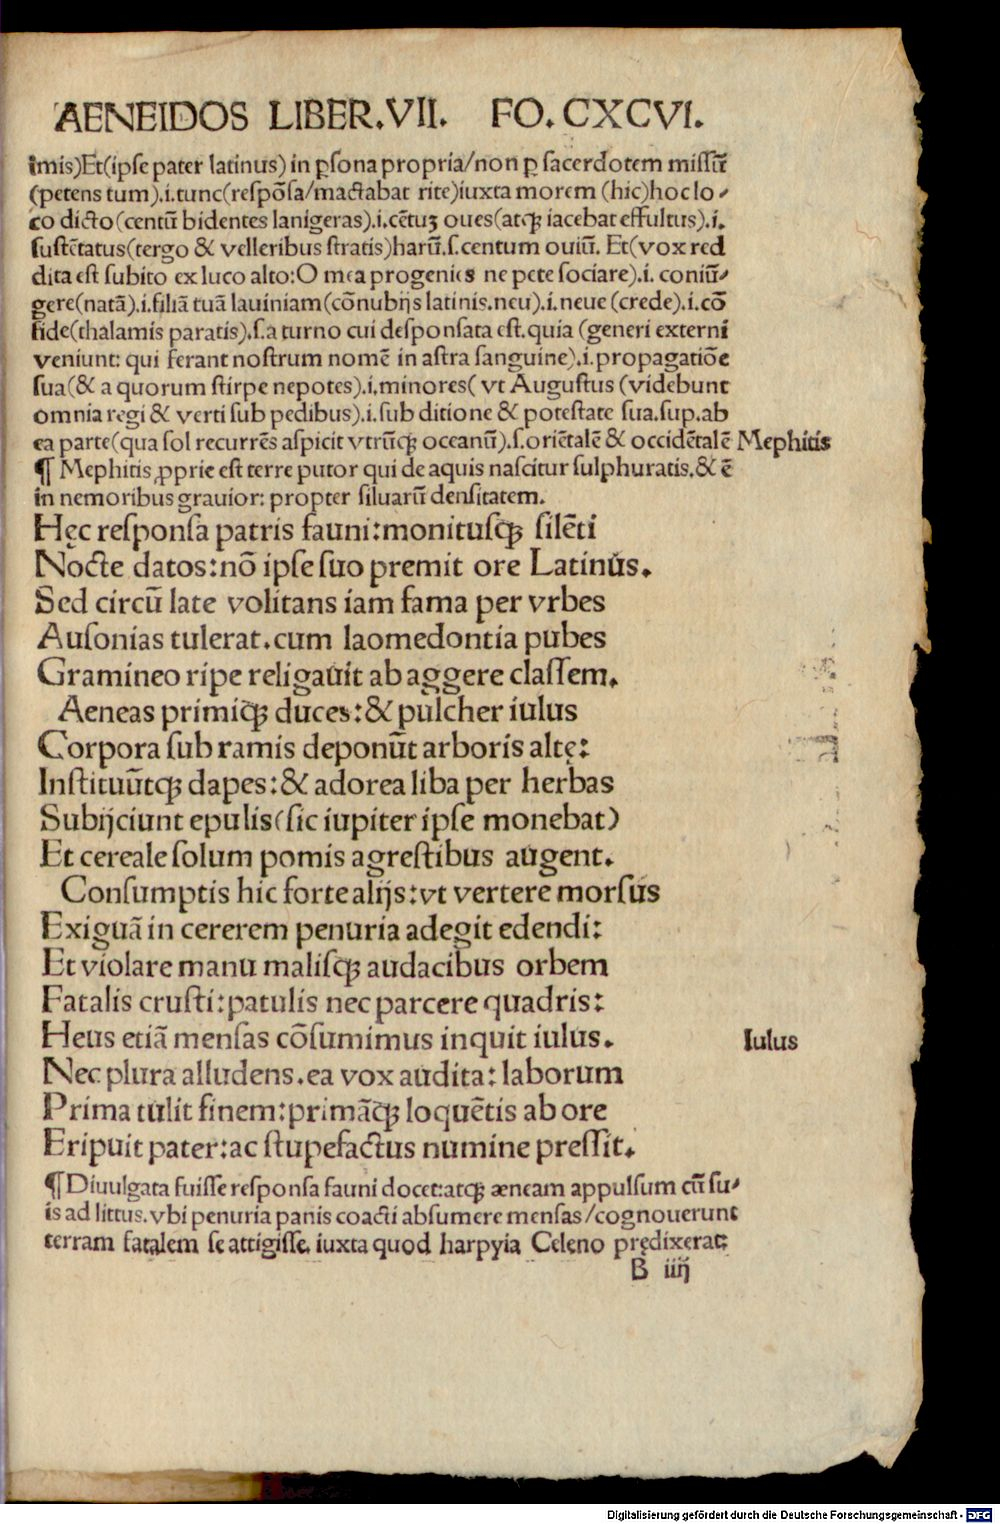 AENEIDOS LIBER.VII. FO.CXCVI.
imis)Et(ipſe pater latinus) in ꝑſona propria/non ꝑ ſacerdotem miſſū
(petens tum).i.tunc(reſpōſa/mactabat rite)iuxta morem (hic)hoc lo-
co dicto(centū bidentes lanigeras).i.cētuʒ oues(atqꝫ iacebat effultus).i.
ſuſtētatus(tergo & velleribus ſtratis)harū.ſ.centum ouiū. Et(vox red
dita eſt ſubito ex luco alto:O mea progenies ne pete ſociare).i. coniū-
gere(natā).i.filiā tuā lauiniam(cōnubijs latinis.neu).i.neue (crede).i.cō
fide(thalamis paratis).ſ.a turno cui deſponſata eſt.quia (generi externi
veniunt: qui ferant noſtrum nomē in aſtra ſanguine).i.propagatiōe
ſua(& a quorum ſtirpe nepotes).i.minores( vt Auguſtus (videbunt
omnia regi & verti ſub pedibus).i.ſub ditione & poteſtate ſua.ſup.ab
ea parte(qua ſol recurrēs aſpicit vtrūqꝫ oceanū).ſ.oriētalē & occidētalē Mephitis
¶ Mephitis ꝓprie eſt terre putor qui de aquis naſcitur ſulphuratis.& ē
in nemoribus grauior: propter ſiluarū denſitatem.
Hęc reſponſa patris fauni:monituſqꝫ ſilēti
Nocte datos:nō ipſe ſuo premit ore Latinus.
Sed circū late volitans iam fama per vrbes
Auſonias tulerat.cum laomedontia pubes
Gramineo ripe religauit ab aggere claſſem.
Aeneas primiqꝫ duces:& pulcher iulus
Corpora ſub ramis deponūt arboris altę:
Inſtituūtqꝫ dapes:& adorea liba per herbas
Subijciunt epulis(ſic iupiter ipſe monebat)
Et cereale ſolum pomis agreſtibus augent.
Conſumptis hic forte alijs:vt vertere morſus
Exiguā in cererem penuria adegit edendi:
Et violare manu maliſqꝫ audacibus orbem
Fatalis cruſti:patulis nec parcere quadris:
Heus etiā menſas cōſumimus inquit iulus. Iulus
Nec plura alludens.ea vox audita: laborum
Prima tulit finem:primāqꝫ loquētis ab ore
Eripuit pater:ac ſtupefactus numine preſſit.
¶ Diuulgata fuiſſe reſponſa fauni docet:atqꝫ æneam appulſum cū ſu-
is ad littus.vbi penuria panis coacti abſumere menſas/cognouerunt
terram fatalem ſe attigiſſe. iuxta quod harpyia Celeno prędixerat:
B iiij
Digitalisierung gefördert durch die Deutsche Forschungsgemeinschaft - DFG